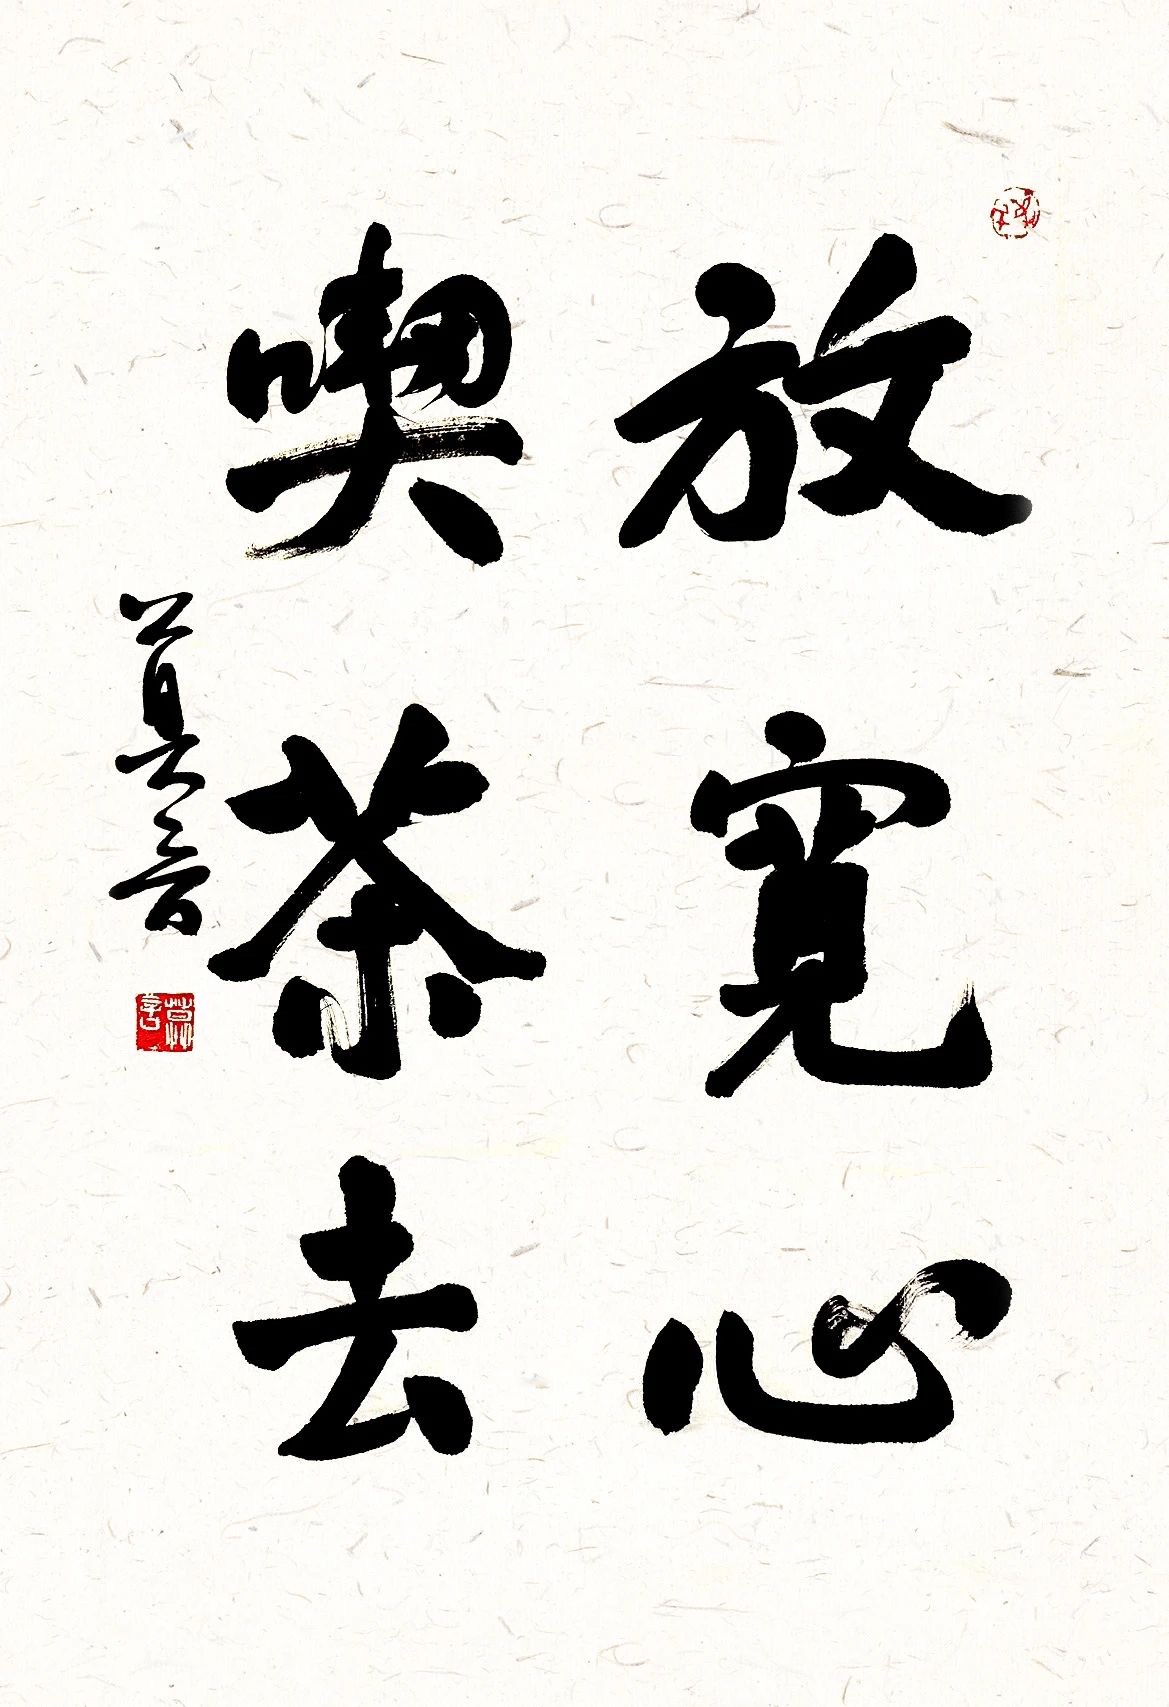 放寬心
喫茶去